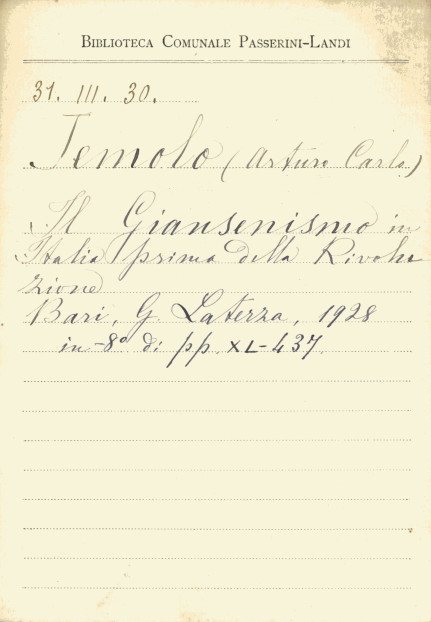 BIBLIOTECA COMUNALE PASSERINI-LANDI
31. III. 30.
Jemolo (Arturo Carlo)
Il Giansenismo in
Italia prima della Rivolu
zione
Bari, G. Laterza, 1928
in-8° di pp. XL-437.